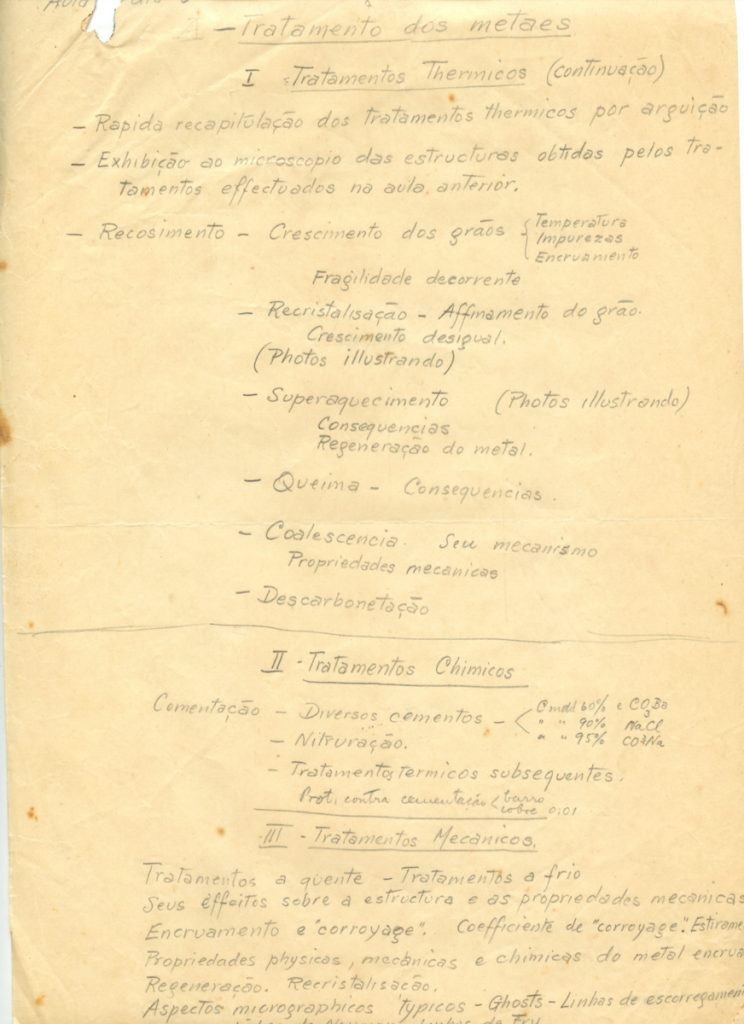 A - Tratamento dos metaes
I - Tratamentos Thermicos (continuação)
- Rapida recapitulação dos tratamentos thermicos por arguição
- Exhibição ao microscopio das estructuras obtidas pelos tra-
tamentos effectuados na aula anterior.
- Recosimento - Crescimento dos grãos { Temperatura
Impurezas
Encruamento
Fragilidade decorrente
- Recristalisação - Affinamento do grão.
Crescimento desigual.
(Photos illustrando)
- Superaquecimento (Photos illustrando)
Consequencias
Regeneração do metal.
- Queima - Consequencias.
- Coalescencia. Seu mecanismo
Propriedades mecanicas
- Descarbonetação
II - Tratamentos Chimicos
Cementação - Diversos cementos - < 60% e CO3Ba
" " 90% NaCl
" " 95% CO3Na
- Nitruração.
- Tratamentos termicos subsequentes.
Prot. contra cementação < barro
cobre 0,01
III - Tratamentos Mecanicos.
Tratamentos a quente - Tratamentos a frio
Seus effeitos sobre a estructura e as propriedades mecanicas
Encruamento e "corroyage". Coefficiente de "corroyage". Estirame
Propriedades physicas, mecânicas e chimicas do metal encrua
Regeneração. Recristalisação.
Aspectos micrographicos typicos - Ghosts - Linhas de escorregament
de Neumann Linhas de Fry